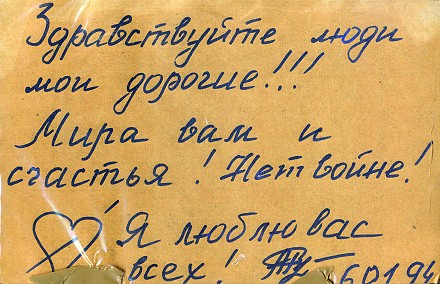 Здравствуйте люди
мои дорогие!!!
Мира вам и
счастья! Нет войне!
Я люблю вас
всех!